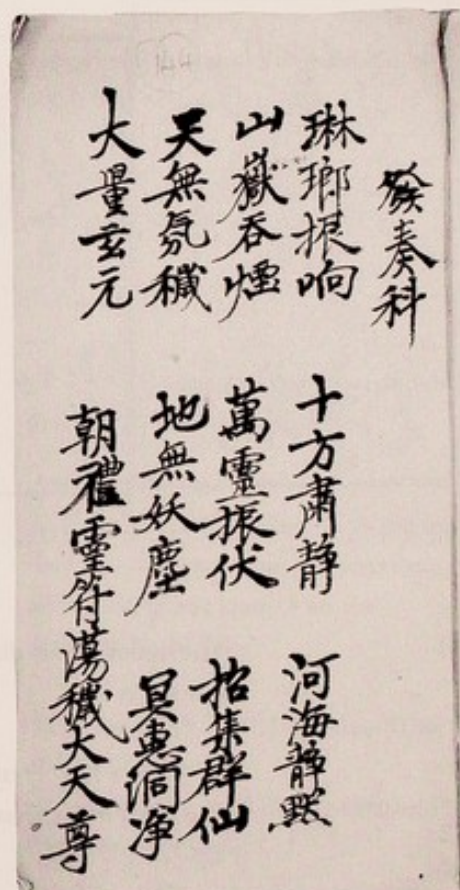 發奏科
琳瑯振响 十方肅静 河海静默
山嶽吞煙 萬靈振伏 招集群仙
天無氛穢 地無妖塵 冥慧洞净
大量玄元 朝禮靈符蕩穢大天尊